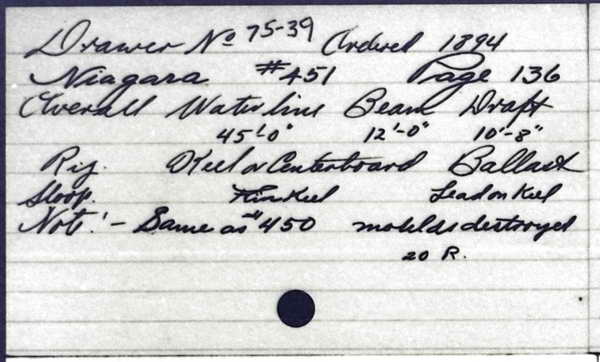 Drawer No 75-39 Ordered 1894
Niagara #451 Page 136
Overall Waterline Beam Draft
45'-0" 12'-0" 10'-8"
Rig. Keel or Centerboard Ballast
Sloop. Fin Keel Lead on Keel
Note! - Same as #450 molds destroyed
20 R.